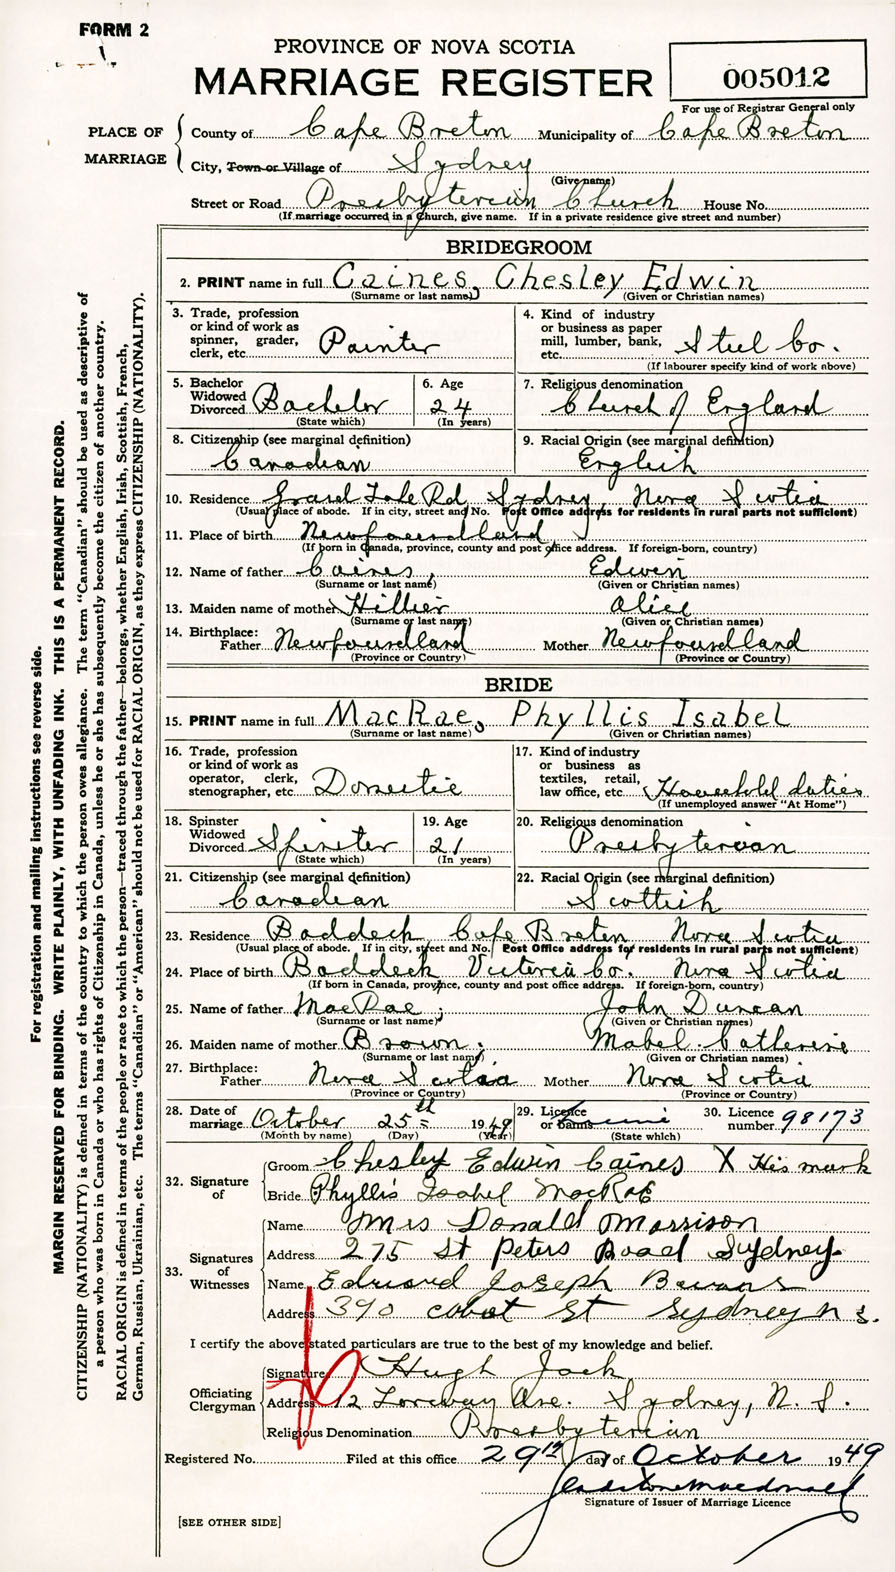 FORM 2
PROVINCE OF NOVA SCOTIA
MARRIAGE REGISTER
005012
For use of Registrar General only
PLACE OF MARRIAGE
County of Cape Breton Municipality of Cape Breton
City, Town or Village of Sydney
(Give name)
Street or Road Presbyterian Church House No.
(If marriage occurred in a Church, give name. If in a private residence give street and number)
BRIDEGROOM
2. PRINT name in full Caines, Chesley Edwin
(Surname or last name) (Given or Christian names)
3. Trade, profession or kind of work as spinner, grader, clerk, etc. Painter
4. Kind of industry or business as paper mill, lumber, bank, etc. Steel Co.
(If labourer specify kind of work above)
5. Bachelor Widowed Divorced Bachelor
(State which)
6. Age 24
(In years)
7. Religious denomination Church of England
8. Citizenship (see marginal definition) Canadian
9. Racial Origin (see marginal definition) English
10. Residence Grand Lake Rd Sydney Nova Scotia
(Usual place of abode. If in city, street and No. Post Office address for residents in rural parts not sufficient)
11. Place of birth Newfoundland
(If born in Canada, province, county and post office address. If foreign-born, country)
12. Name of father Caines, Edwin
(Surname or last name) (Given or Christian names)
13. Maiden name of mother Hillier Alice
(Surname or last name) (Given or Christian names)
14. Birthplace: Father Newfoundland Mother Newfoundland
(Province or Country) (Province or Country)
BRIDE
15. PRINT name in full MacRae, Phyllis Isabel
(Surname or last name) (Given or Christian names)
16. Trade, profession or kind of work as operator, clerk, stenographer, etc. Domestic
17. Kind of industry or business as textiles, retail, law office, etc. Household duties
(If unemployed answer "At Home")
18. Spinster Widowed Divorced Spinster
(State which)
19. Age 21
(In years)
20. Religious denomination Presbyterian
21. Citizenship (see marginal definition) Canadian
22. Racial Origin (see marginal definition) Scottish
23. Residence Baddeck Cape Breton Nova Scotia
(Usual place of abode. If in city, street and No. Post Office address for residents in rural parts not sufficient)
24. Place of birth Baddeck Victoria Co. Nova Scotia
(If born in Canada, province, county and post office address. If foreign-born, country)
25. Name of father MacRae, John Duncan
(Surname or last name) (Given or Christian names)
26. Maiden name of mother Brown, Mabel Catherine
(Surname or last name) (Given or Christian names)
27. Birthplace: Father Nova Scotia Mother Nova Scotia
(Province or Country) (Province or Country)
28. Date of marriage October 25th 1949
(Month by name) (Day) (Year)
29. Licence or banns
(State which)
30. Licence number 98173
32. Signature of
Groom Chesley Edwin Caines X His mark
Bride Phyllis Isabel MacRae
33. Signatures of Witnesses
Name Mrs Donald Morrison
Address 275 St Peters Road Sydney
Name Edward Joseph Bevans
Address 390 Cabot St Sydney N S.
I certify the above stated particulars are true to the best of my knowledge and belief.
Officiating Clergyman
Signature Hugh Jack
Address 12 Lorway Ave. Sydney, N. S.
Religious Denomination Presbyterian
Registered No. Filed at this office 29th day of October 1949
Gladstone Macdonald
Signature of Issuer of Marriage Licence
[SEE OTHER SIDE]
For registration and mailing instructions see reverse side.
MARGIN RESERVED FOR BINDING. WRITE PLAINLY, WITH UNFADING INK. THIS IS A PERMANENT RECORD.
CITIZENSHIP (NATIONALITY) is defined in terms of the country to which the person owes allegiance. The term "Canadian" should be used as descriptive of
a person who was born in Canada or who has rights of Citizenship in Canada, unless he or she has subsequently become the citizen of another country.
RACIAL ORIGIN is defined in terms of the people or race to which the person—traced through the father—belongs, whether English, Irish, Scottish, French,
German, Russian, Ukrainian, etc. The terms "Canadian" or "American" should not be used for RACIAL ORIGIN, as they express CITIZENSHIP (NATIONALITY).